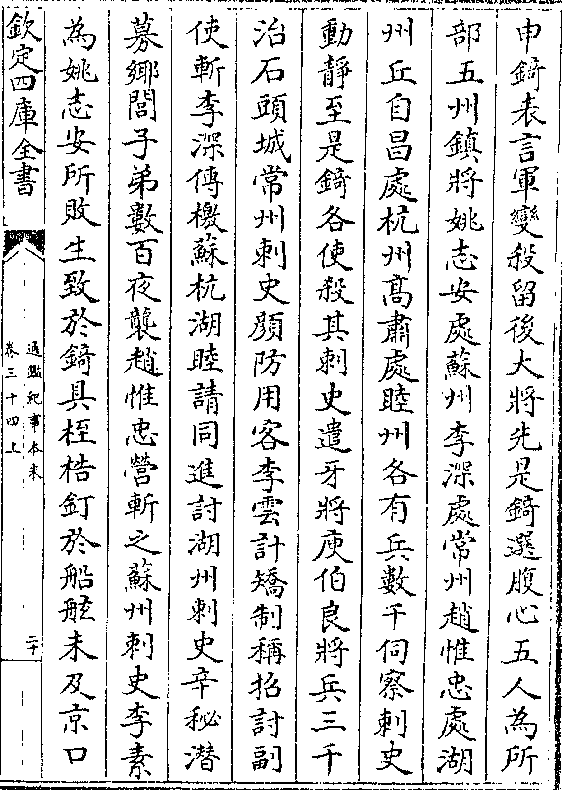 申錡表言軍變殺留後大將先是錡選腹心五人為所
部五州鎮將姚志安處蘇州李深處常州趙惟忠處湖
州丘自昌處杭州髙肅處睦州各有兵數千伺察刺史
動靜至是錡各使殺其刺史遣牙將庾伯良將兵三千
治石頭城常州刺史顔防用客李雲計矯制稱招討副
使斬李深傳檄蘇杭湖睦請同進討湖州刺史辛秘潜
募鄉閭子弟數百夜襲趙惟忠營斬之蘇州刺史李素
為姚志安所敗生致於錡具桎梏釘於船舷未及京口
欽定四庫全書
通鑑紀事本末
卷三十四上
二十